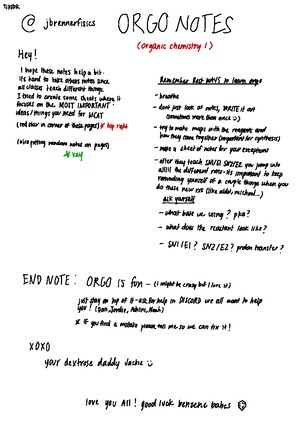 TIKTOK
@ jbrennerfisics
ORGO NOTES
(organic chemistry 1)
Hey!
I hope these notes help a bit.
its hard to take others notes since
all classes teach different things.
I tried to create some sheets where it
focuses on the MOST IMPORTANT
ideas/things you need for MCAT
(red star in corner of those pages) * top right
(also putting random notes on pages)
* key
Remember Best WAYS to learn orgo
- breathe
- dont just look at notes, WRITE it out
(sometimes more than once)
- try to make maps with the reagents and
how they come together (important for synthesis)
- make a sheet of notes for your exceptions
- after they teach SN1/E1 SN2/E2 you jump into
all the different rxns - its important to keep
reminding yourself of a couple things when you
do these new rxns (like aldol, michael...)
ask yourself
- what base we using? pka?
- what does the reactant look like?
- SN1/E1? SN2/E2? proton transfer?
END NOTE: ORGO is fun - (i might be crazy but I love it)
just stay on top of it - ask for help in DISCORD we all want to help
you!
* IF you find a mistake please tell me so we can fix it!
XOXO
your dextrose daddy Jackie
love you All! good luck benzene babes